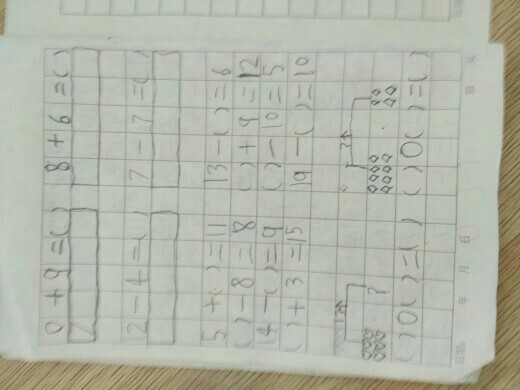 0+9=( ) 8+6=( )
12-4=( ) 7-7=( )
5+( )=11 13-( )=6
( )-8=8 ( )+9=12
14-( )=9 ( )-10=5
( )+3=15 19-( )=10
?
( )○( )=( ) ( )○( )=( )
年 月 日